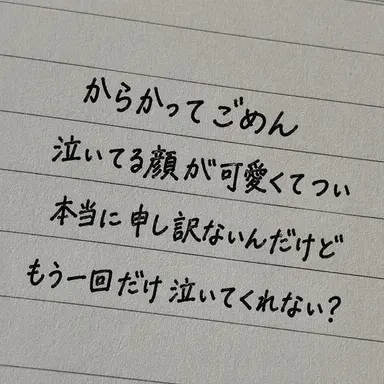 からかってごめん
泣いてる顔が可愛くてつい
本当に申し訳ないんだけど
もう一回だけ泣いてくれない?